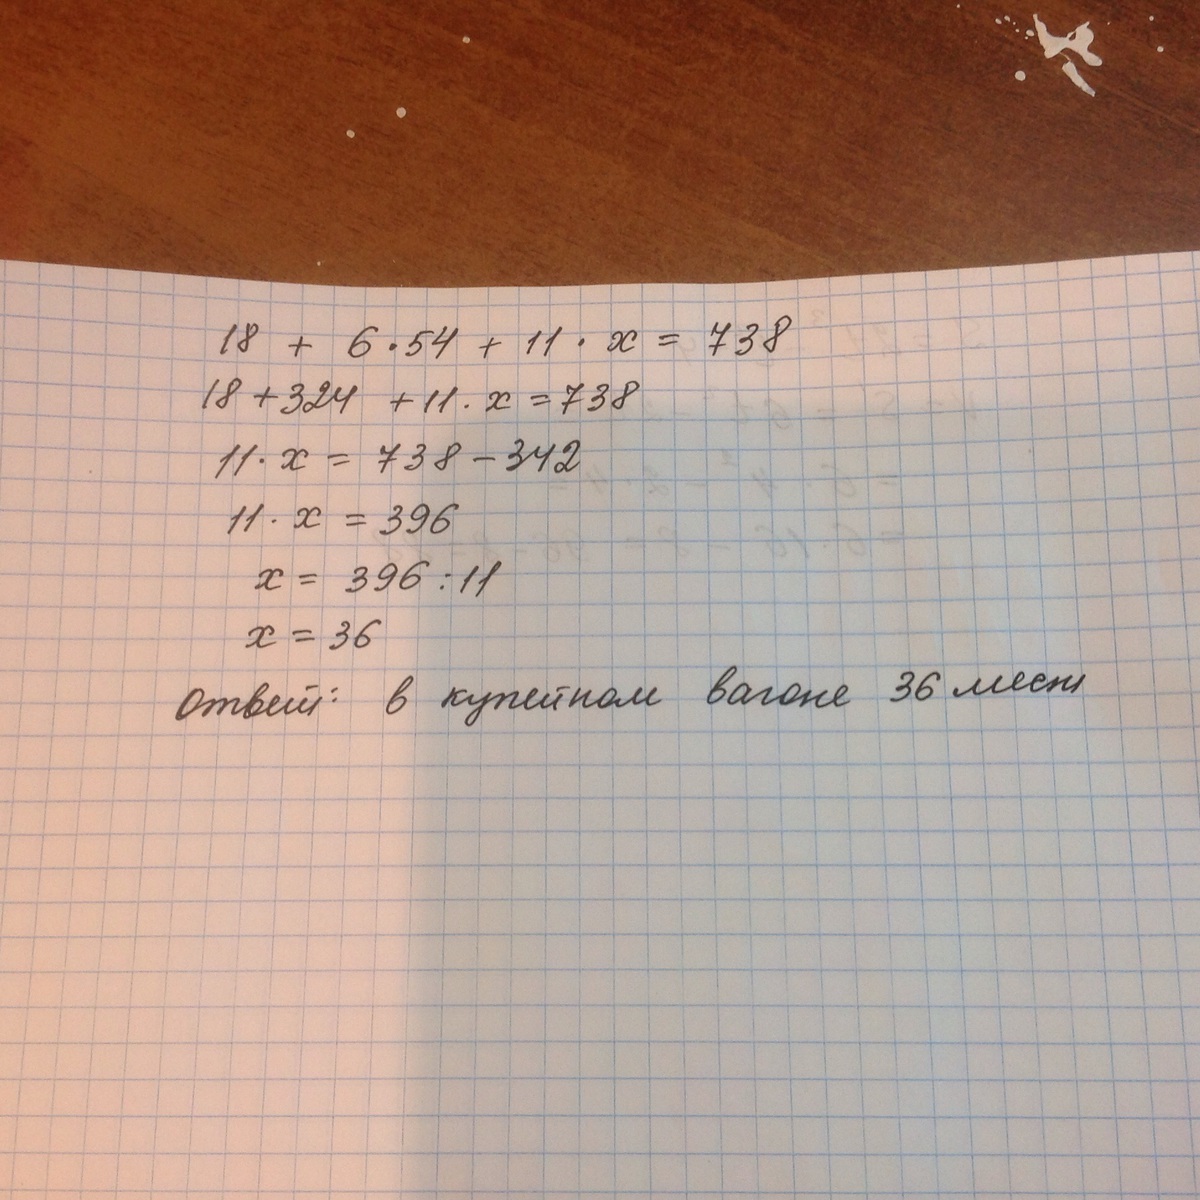 18 + 6·54 + 11· x = 738
18 + 324 + 11· x = 738
11· x = 738 - 342
11· x = 396
x = 396 : 11
x = 36
Ответ: в купейном вагоне 36 мест